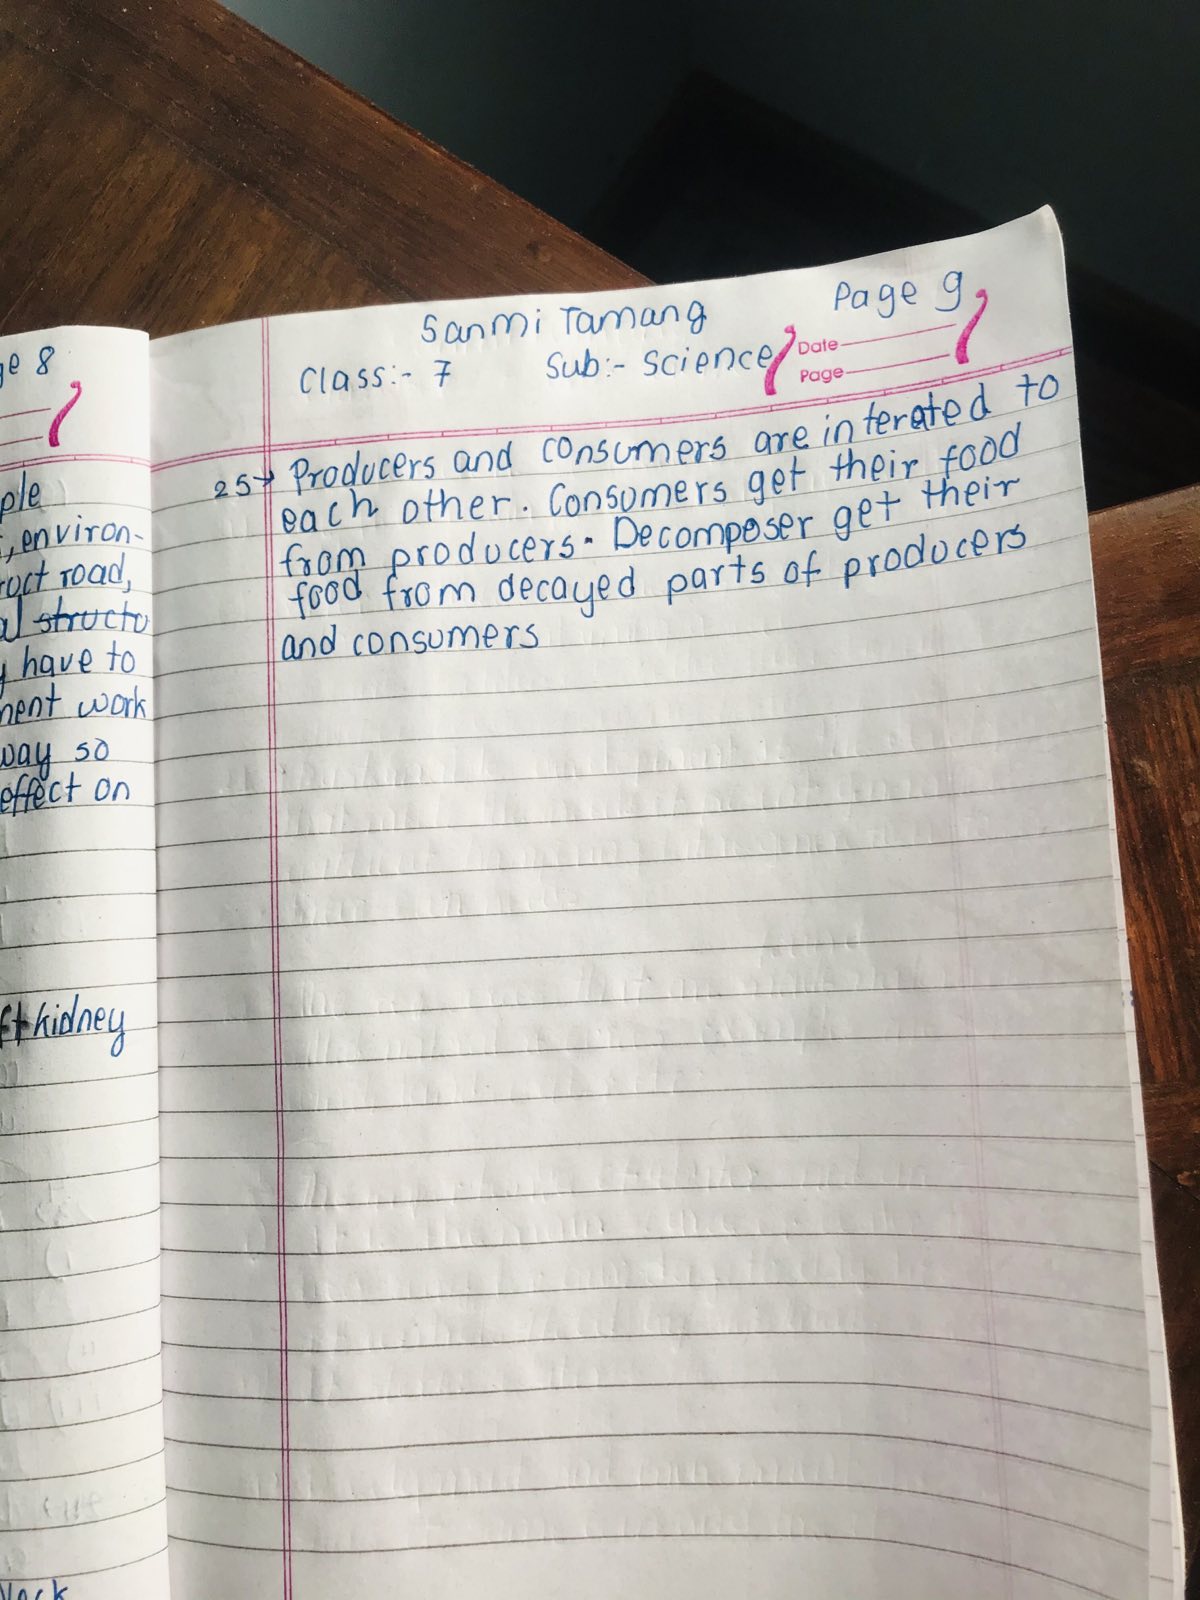 ge 8
ple
, environ-
ruct road,
al structu
y have to
ment work
way so
effect on
ft kidney
Sanmi Tamang
Page 9
Class:- 7
Sub:- Science
Date
Page
25→ Producers and consumers are interated to
each other. Consumers get their food
from producers. Decomposer get their
food from decayed parts of producers
and consumers